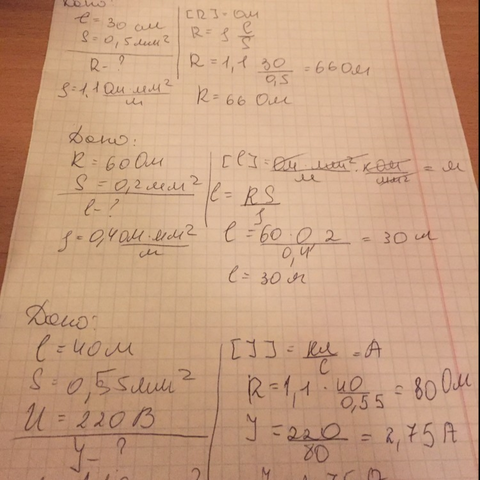 Дано:
l = 30 см
S = 0,5 мм²
R - ?
ρ = 1,1 Ом мм²/м
[R] = Ом
R = ρ l/S
R = 1,1 30/0,5 = 66 Ом
R = 66 Ом
Дано:
R = 60 Ом
S = 0,2 мм²
l - ?
ρ = 0,4 Ом·мм²/м
[l] = = м
l = RS/ρ
l = 60·0,2/0,4 = 30 м
l = 30 м
Дано:
l = 40 м
S = 0,55 мм²
U = 220 В
J - ?
[J] = Кл/с = А
R = 1,1 · 40/0,55 = 80 Ом
J = 220/80 = 2,75 А